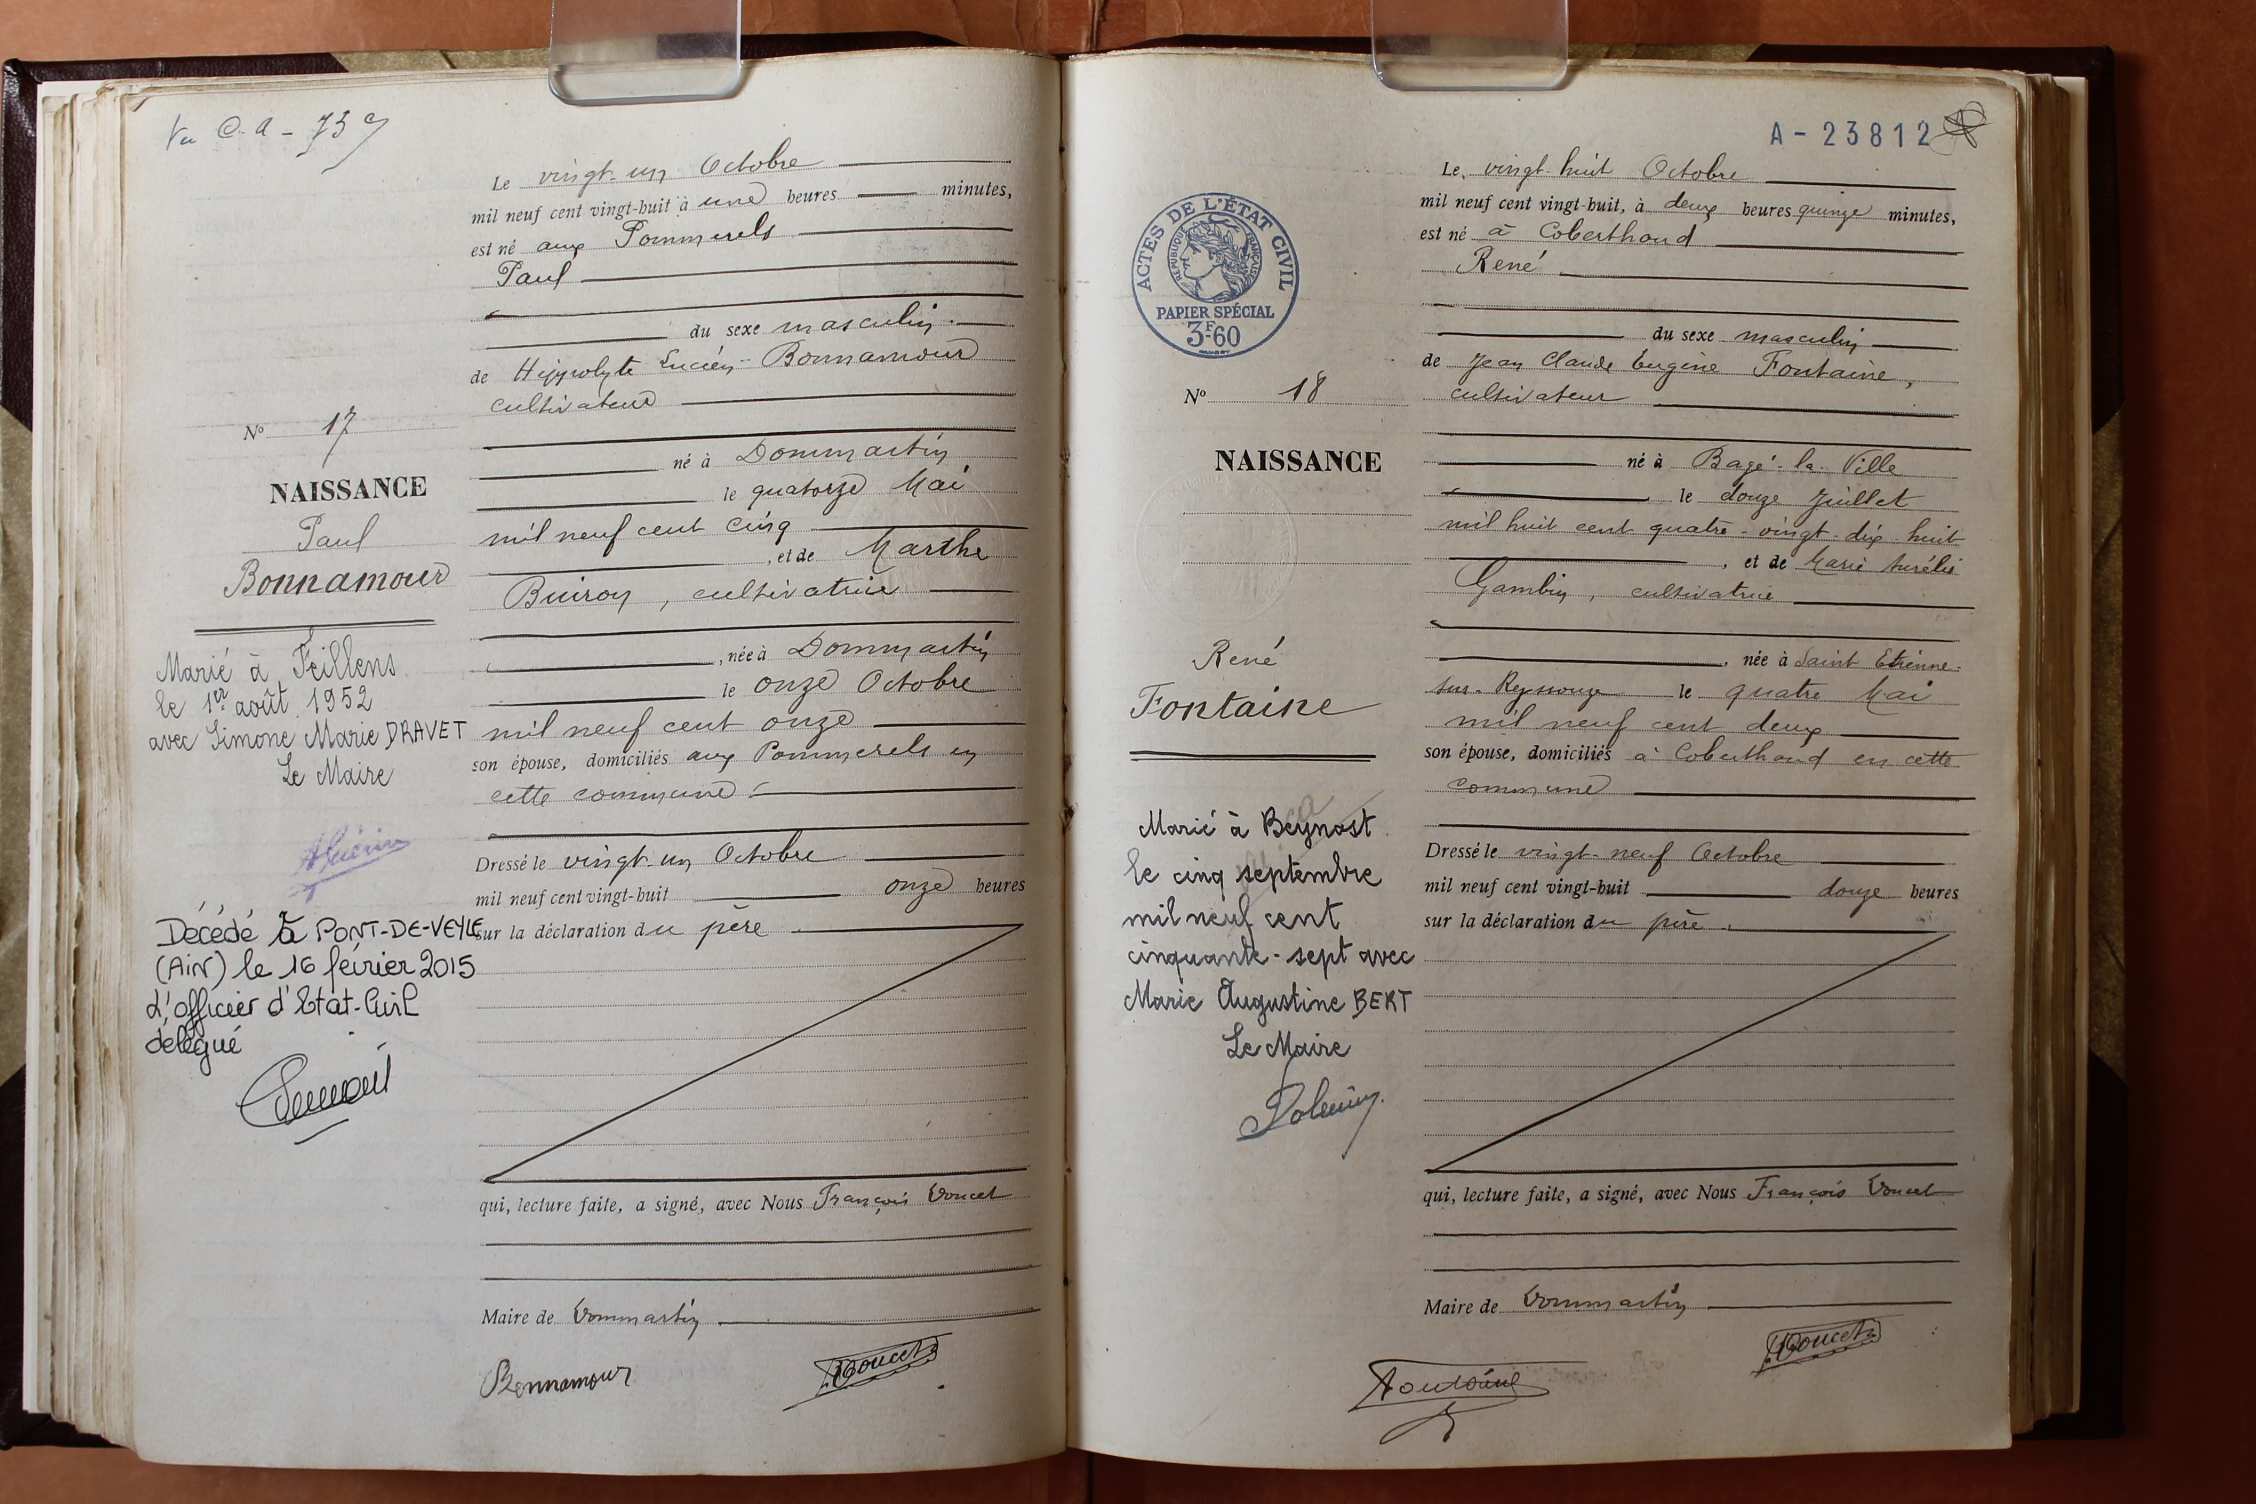 Vu C. A - 73
Le vingt-un Octobre
mil neuf cent vingt-huit à une heures minutes,
est né aux Pommerels
Paul
du sexe masculin.
de Hippolyte Lucien Bonnamour
cultivateur
né à Dommartin
le quatorze Mai
mil neuf cent cinq
, et de Marthe
Buiron, cultivatrice
, née à Dommartin
le onze Octobre
mil neuf cent onze
son épouse, domiciliés aux Pommerels en
cette commune
Dressé le vingt-un Octobre
mil neuf cent vingt-huit onze heures
sur la déclaration du père
qui, lecture faite, a signé, avec Nous François Doucet
Maire de Dommartin
Bonnamour
Doucet
No 17
NAISSANCE
Paul
Bonnamour
Marié à Feillens
le 1er août 1952
avec Simone Marie DRAVET
Le Maire
Décédé à PONT-DE-VEYLE
(AiN) le 16 février 2015
L'officier d'Etat-Civil
délégué
A-23812
ACTES DE L'ÉTAT CIVIL
RÉPUBLIQUE FRANÇAISE
PAPIER SPÉCIAL
3F-60
No 18
NAISSANCE
René
Fontaine
Marié à Beynost
le cinq septembre
mil neuf cent
cinquante-sept avec
Marie Augustine BERT
Le Maire
Le vingt-huit Octobre
mil neuf cent vingt-huit, à deux heures quinze minutes,
est né à Coberthoud
René
du sexe masculin
de Jean Claude Eugène Fontaine,
cultivateur
né à Bagé-la-Ville
le douze Juillet
mil huit cent quatre-vingt-dix-huit
, et de Marie Aurélie
Gambin, cultivatrice
, née à Saint Etienne-
sur-Reyssouze le quatre Mai
mil neuf cent deux
son épouse, domiciliés à Coberthoud en cette
commune
Dressé le vingt-neuf Octobre
mil neuf cent vingt-huit douze heures
sur la déclaration du père.
qui, lecture faite, a signé, avec Nous François Doucet
Maire de Dommartin
Fontaine
Doucet